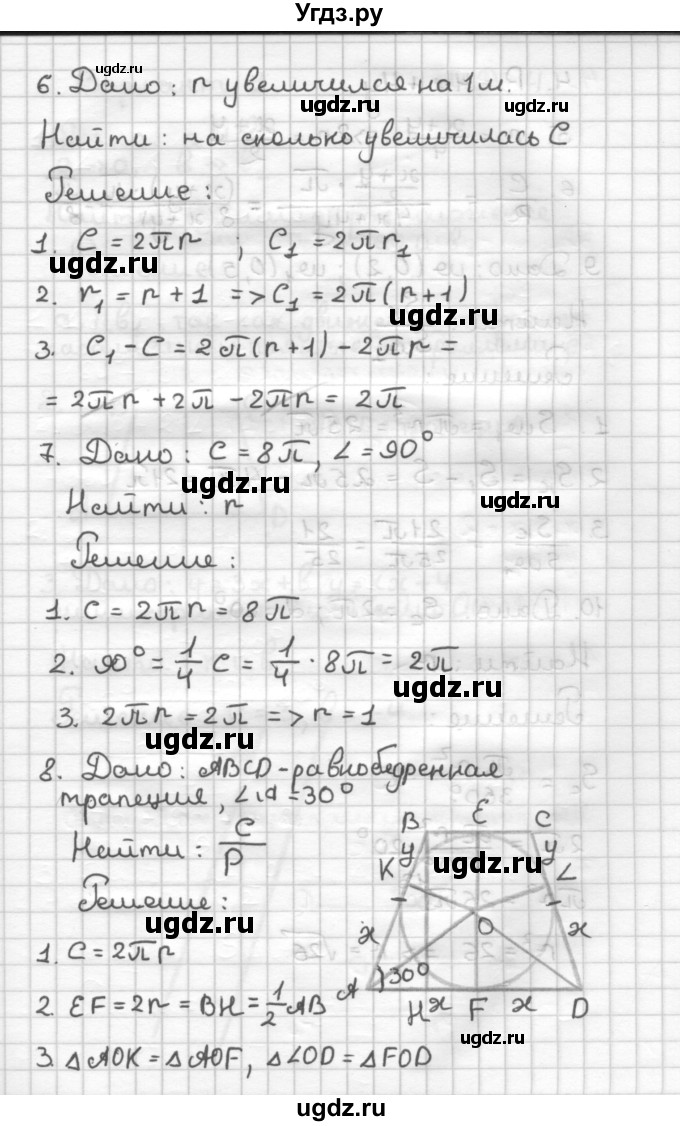 Угдз.ру
ugdz.ru
6. Дано: r увеличился на 1 м.
ugdz.ru
Найти: на сколько увеличилась C
Решение:
1. C = 2πr ; C₁ = 2πr₁
ugdz.ru
2. r₁ = r + 1 => C₁ = 2π(r+1)
ugdz.ru
3. C₁ - C = 2π(r+1) - 2πr =
= 2πr + 2π - 2πr = 2π
7. Дано: C = 8π, ∠ = 90°
ugdz.ru
ugdz.ru
Найти: r
Решение:
ugdz.ru
1. C = 2πr = 8π
2. 90° = 1/4 C = 1/4 · 8π = 2π
ugdz.ru
3. 2πr = 2π => r = 1
ugdz.ru
8. Дано: ABCD - равнобедренная
трапеция, ∠A = 30°
Найти: C/P
Решение:
ugdz.ru
1. C = 2πr
2. EF = 2r = BH = 1/2 AB
3. △AOK = △AOF, △LOD = △FOD
B E C
y y
ugdz.ru
K L
O
x x
A 30°
H x F x D
ugdz.ru
ugdz.ru